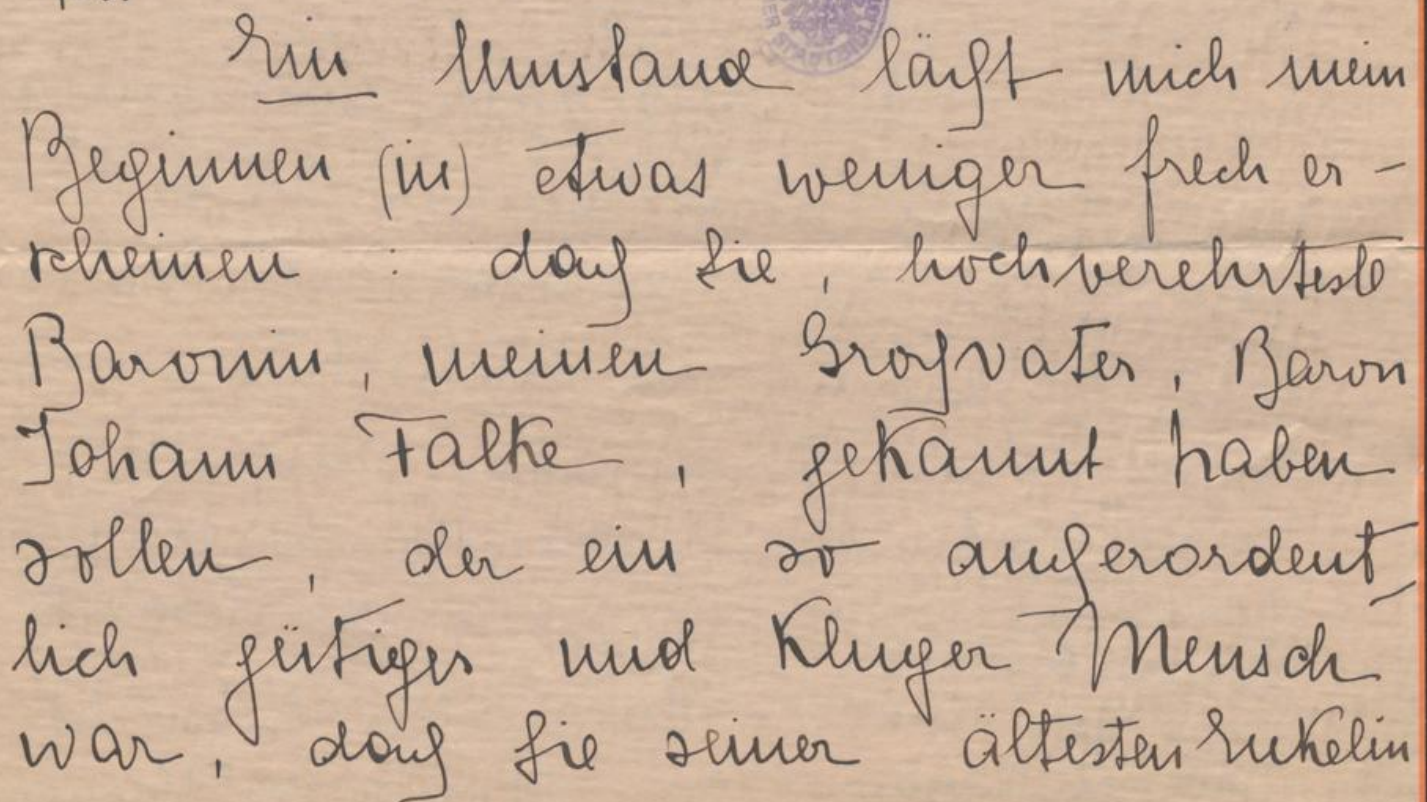 Ein Umstand läßt mich mein
Beginnen (in) etwas weniger frech er-
scheinen : daß Sie, hochverehrteste
Baronin, meinen Großvater, Baron
Johann Falke, gekannt haben
sollen, der ein so außerordent,
lich gütiger und kluger Mensch
war, daß Sie seiner ältesten Enkelin